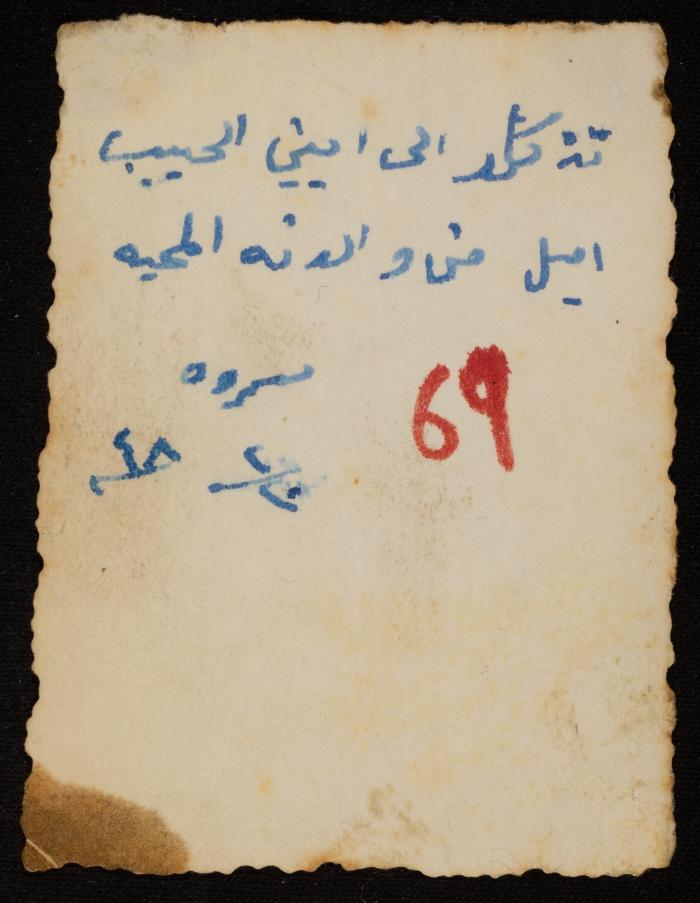 تذكار الى ابني الحبيب
اميل من والدته المحبه
مروه
69
٢/٢٠ ٤٨